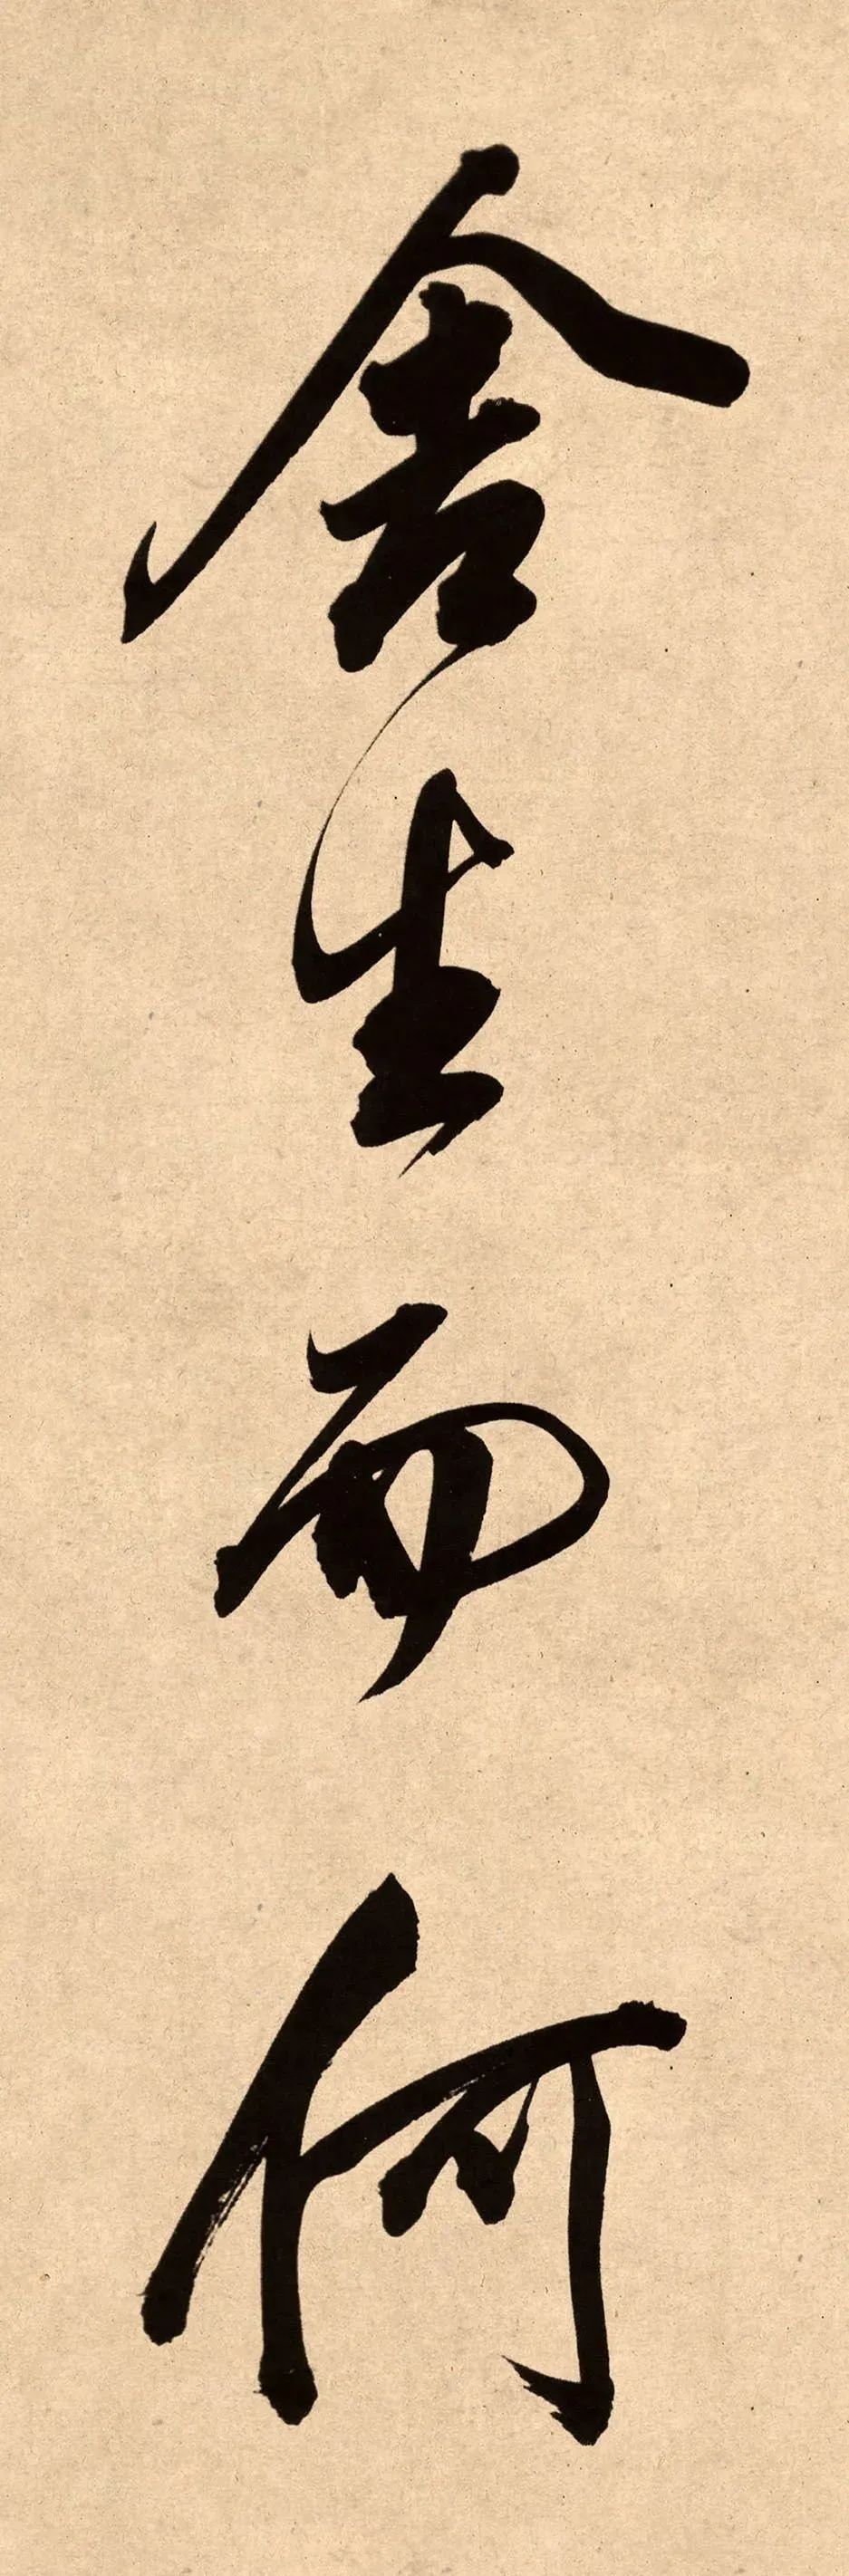 舍生而何